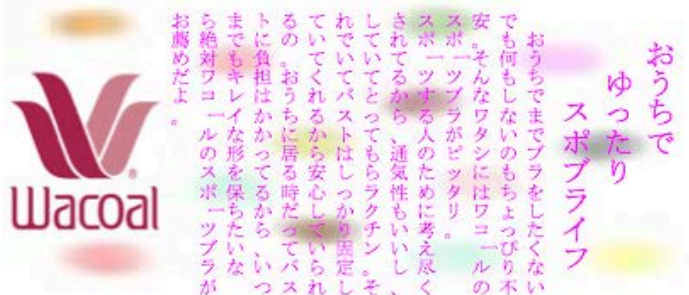 おうちで
ゆったり
スポブライフ
おうちでまでブラをしたくない
でも何もしないのもちょっぴり不
安。そんなワタシにはワコールの
スポーツブラがピッタリ。
スポーツする人のために考え尽く
されてるから、通気性もいいし、
していてとってもらラクチン。そ
れでいてバストはしっかり固定し
ていてくれるから安心していられ
るの。おうちに居る時だってバス
トに負担はかかってるから、いつ
までもキレイな形を保ちたいな
ら絶対ワコールのスポーツブラが
お薦めだよ。
Wacoal